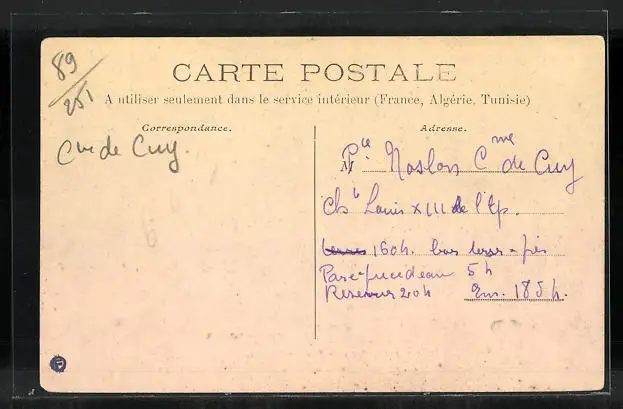 89
251
CARTE POSTALE
A utiliser seulement dans le service intérieur (France, Algérie, Tunisie)
Correspondance.
Adresse.
Cne de Cuy.
M Pté Noslon Cme de Cuy
Chb Louis XIII de l'Ep.
160h. bois terres - prés
Parc 5h
Réserve 20h Env. 185h.